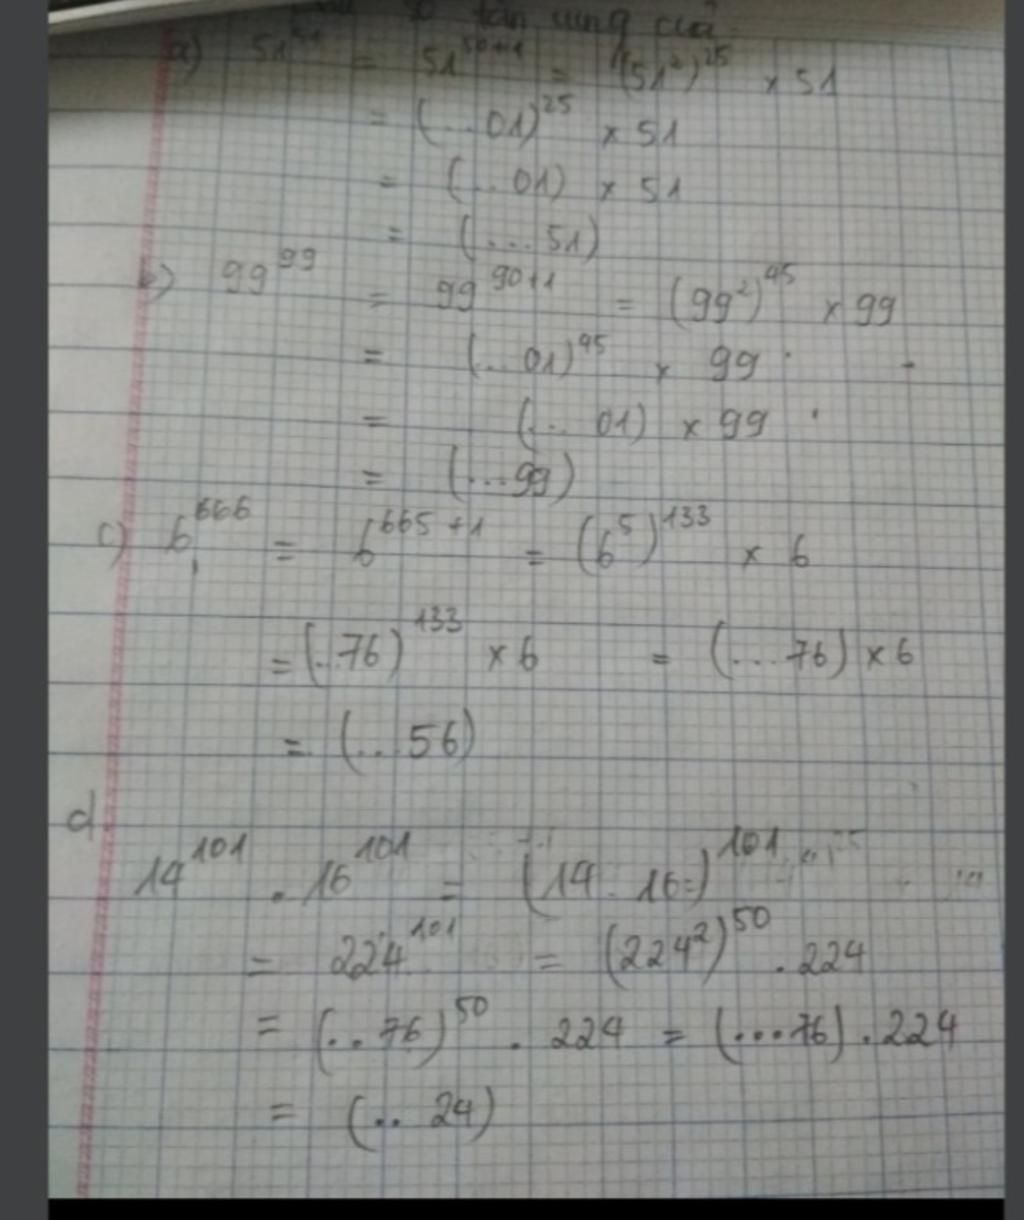 tận cùng của
a) 51⁵¹ = 51⁵⁰⁺¹ = (51²)²⁵ × 51
= (...01)²⁵ × 51
= (...01) × 51
= (...51)
b) 99⁹⁹ = 99⁹⁰⁺¹ = (99²)⁴⁵ × 99
= (...01)⁴⁵ × 99
= (...01) × 99
= (...99)
c) 6⁶⁶⁶ = 6⁶⁶⁵⁺¹ = (6⁵)¹³³ × 6
= (...76)¹³³ × 6 = (...76) × 6
= (...56)
d
14¹⁰¹ . 16¹⁰¹ = (14 . 16)¹⁰¹
= 224¹⁰¹ = (224²)⁵⁰ . 224
= (...76)⁵⁰ . 224 = (...76) . 224
= (...24)